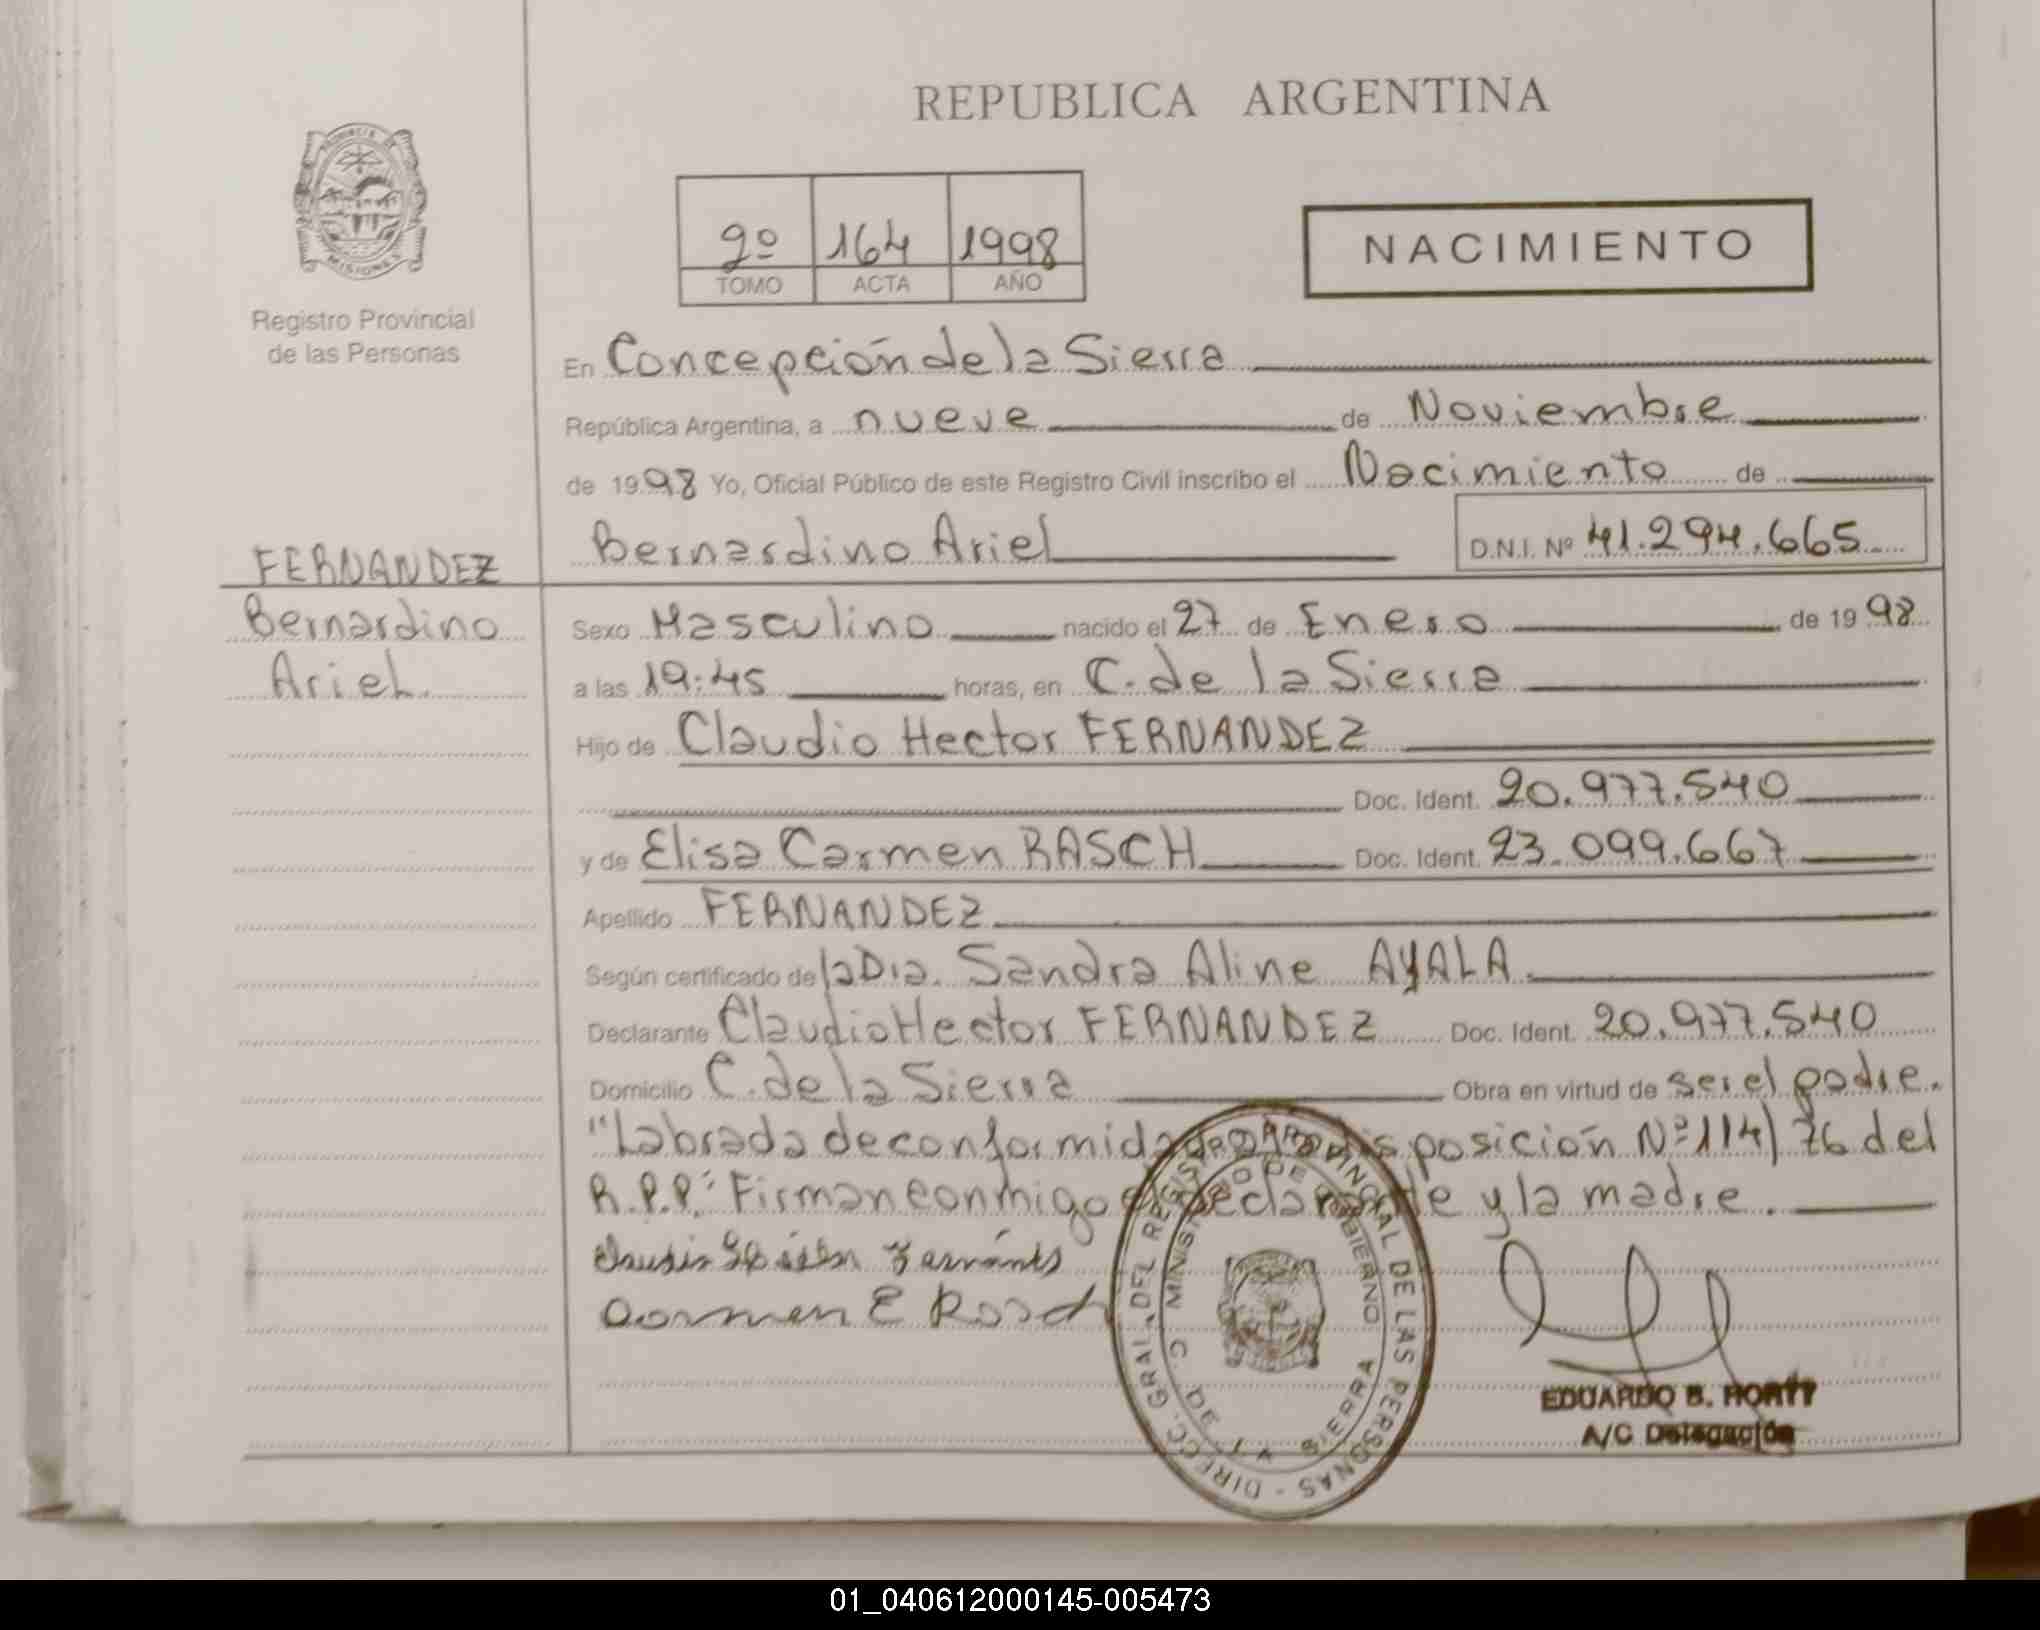 REPUBLICA ARGENTINA
PROVINCIA DE
MISIONES
Registro Provincial
de las Personas
2º 164 1998
TOMO ACTA AÑO
NACIMIENTO
En Concepción de la Sierra
República Argentina, a nueve de Noviembre
de 1998 Yo, Oficial Público de este Registro Civil inscribo el Nacimiento de
Bernardino Ariel D.N.I. Nº 41.294.665
FERNANDEZ
Bernardino
Ariel.
Sexo Masculino nacido el 27 de Enero de 1998
a las 19:45 horas, en C. de la Sierra
Hijo de Claudio Hector FERNANDEZ
Doc. Ident. 20.977.540
y de Elisa Carmen RASCH Doc. Ident. 23.099.667
Apellido FERNANDEZ
Según certificado de la Dra. Sandra Aline AYALA
Declarante Claudio Hector FERNANDEZ Doc. Ident. 20.977.540
Domicilio C. de la Sierra Obra en virtud de ser el padre.
"Labrada de conformidad a la Disposición Nº 114/76 del
R.P.P." Firman conmigo el declarante y la madre.
Carmen E Rasch
DIRECC. GRAL. DEL REGISTRO PROVINCIAL DE LAS PERSONAS -
MINISTERIO DE GOBIERNO
C. DE LA SIERRA
EDUARDO B.
A/C Delegación
01_040612000145-005473